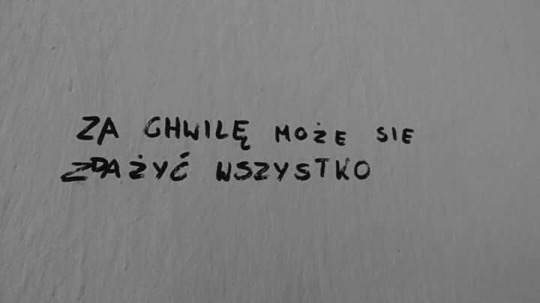 ZA CHWILĘ MOŻE SIE
ZDAŻYĆ WSZYSTKO